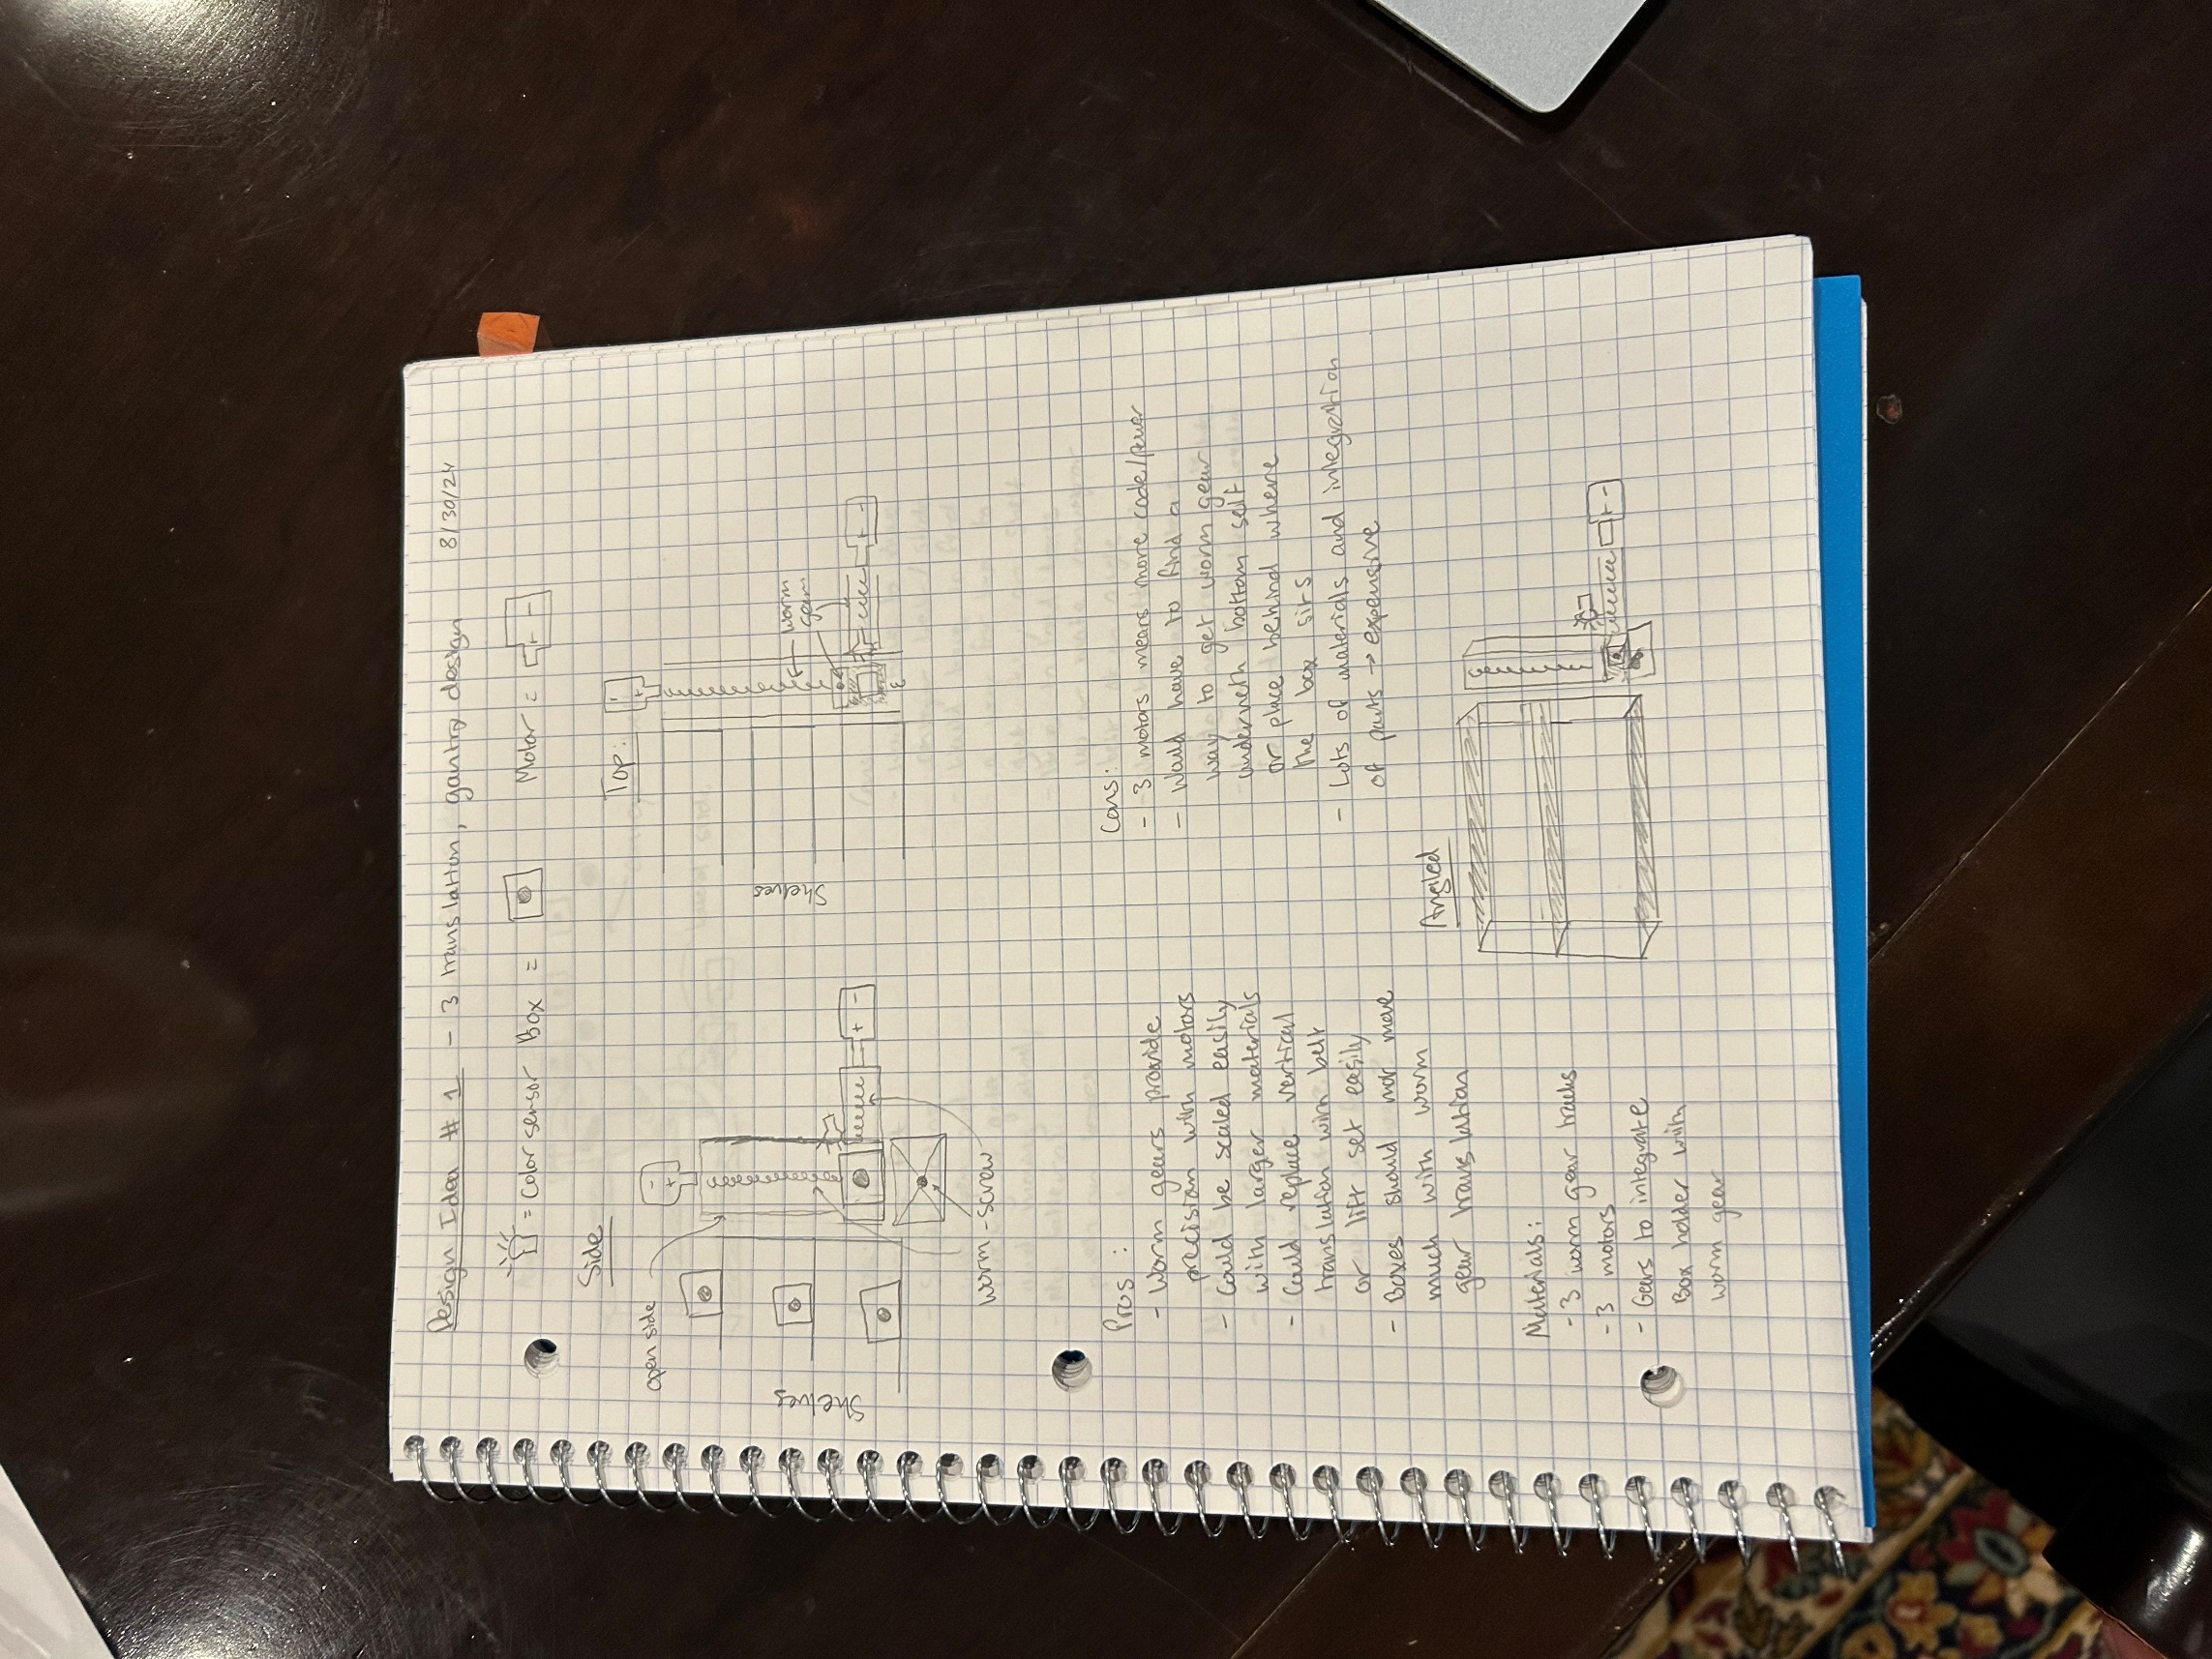 Design Idea # 1 - 3 translation, gantry design 8/30/24
= Color sensor Box = Motor = + -
Side
open side
- +
+ -
Shelves
worm-screw
Top:
- +
worm gears
+ -
Shelves
Pros:
- Worm gears provide
precision with motors
- Could be scaled easily
with larger materials
- Could replace vertical
translation with belt
or lift set easily
- Boxes should not move
much with worm
gear translation
Cons:
- 3 motors means more code/power
- Would have to find a
way to get worm gear
underneth bottom self
or place behind where
the box sits
- Lots of materials and integration
of parts → expensive
Materials:
- 3 worm gear tracks
- 3 motors
- Gears to integrate
Box holder with
worm gear
Angled
+ -